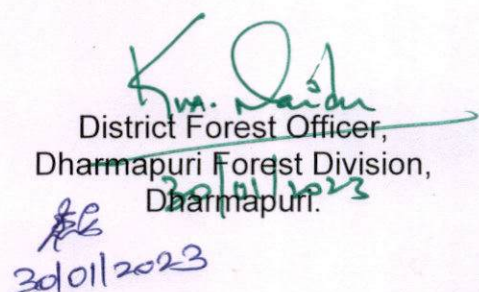 District Forest Officer,
Dharmapuri Forest Division,
Dharmapuri.
30/01/2023
30/01/2023